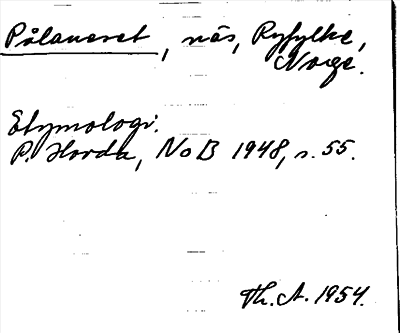 Pålaneset, näs, Ryfylke,
Norge.
Etymologi.
P. Horda, NoB 1948, s. 55.
Th. A. 1954.